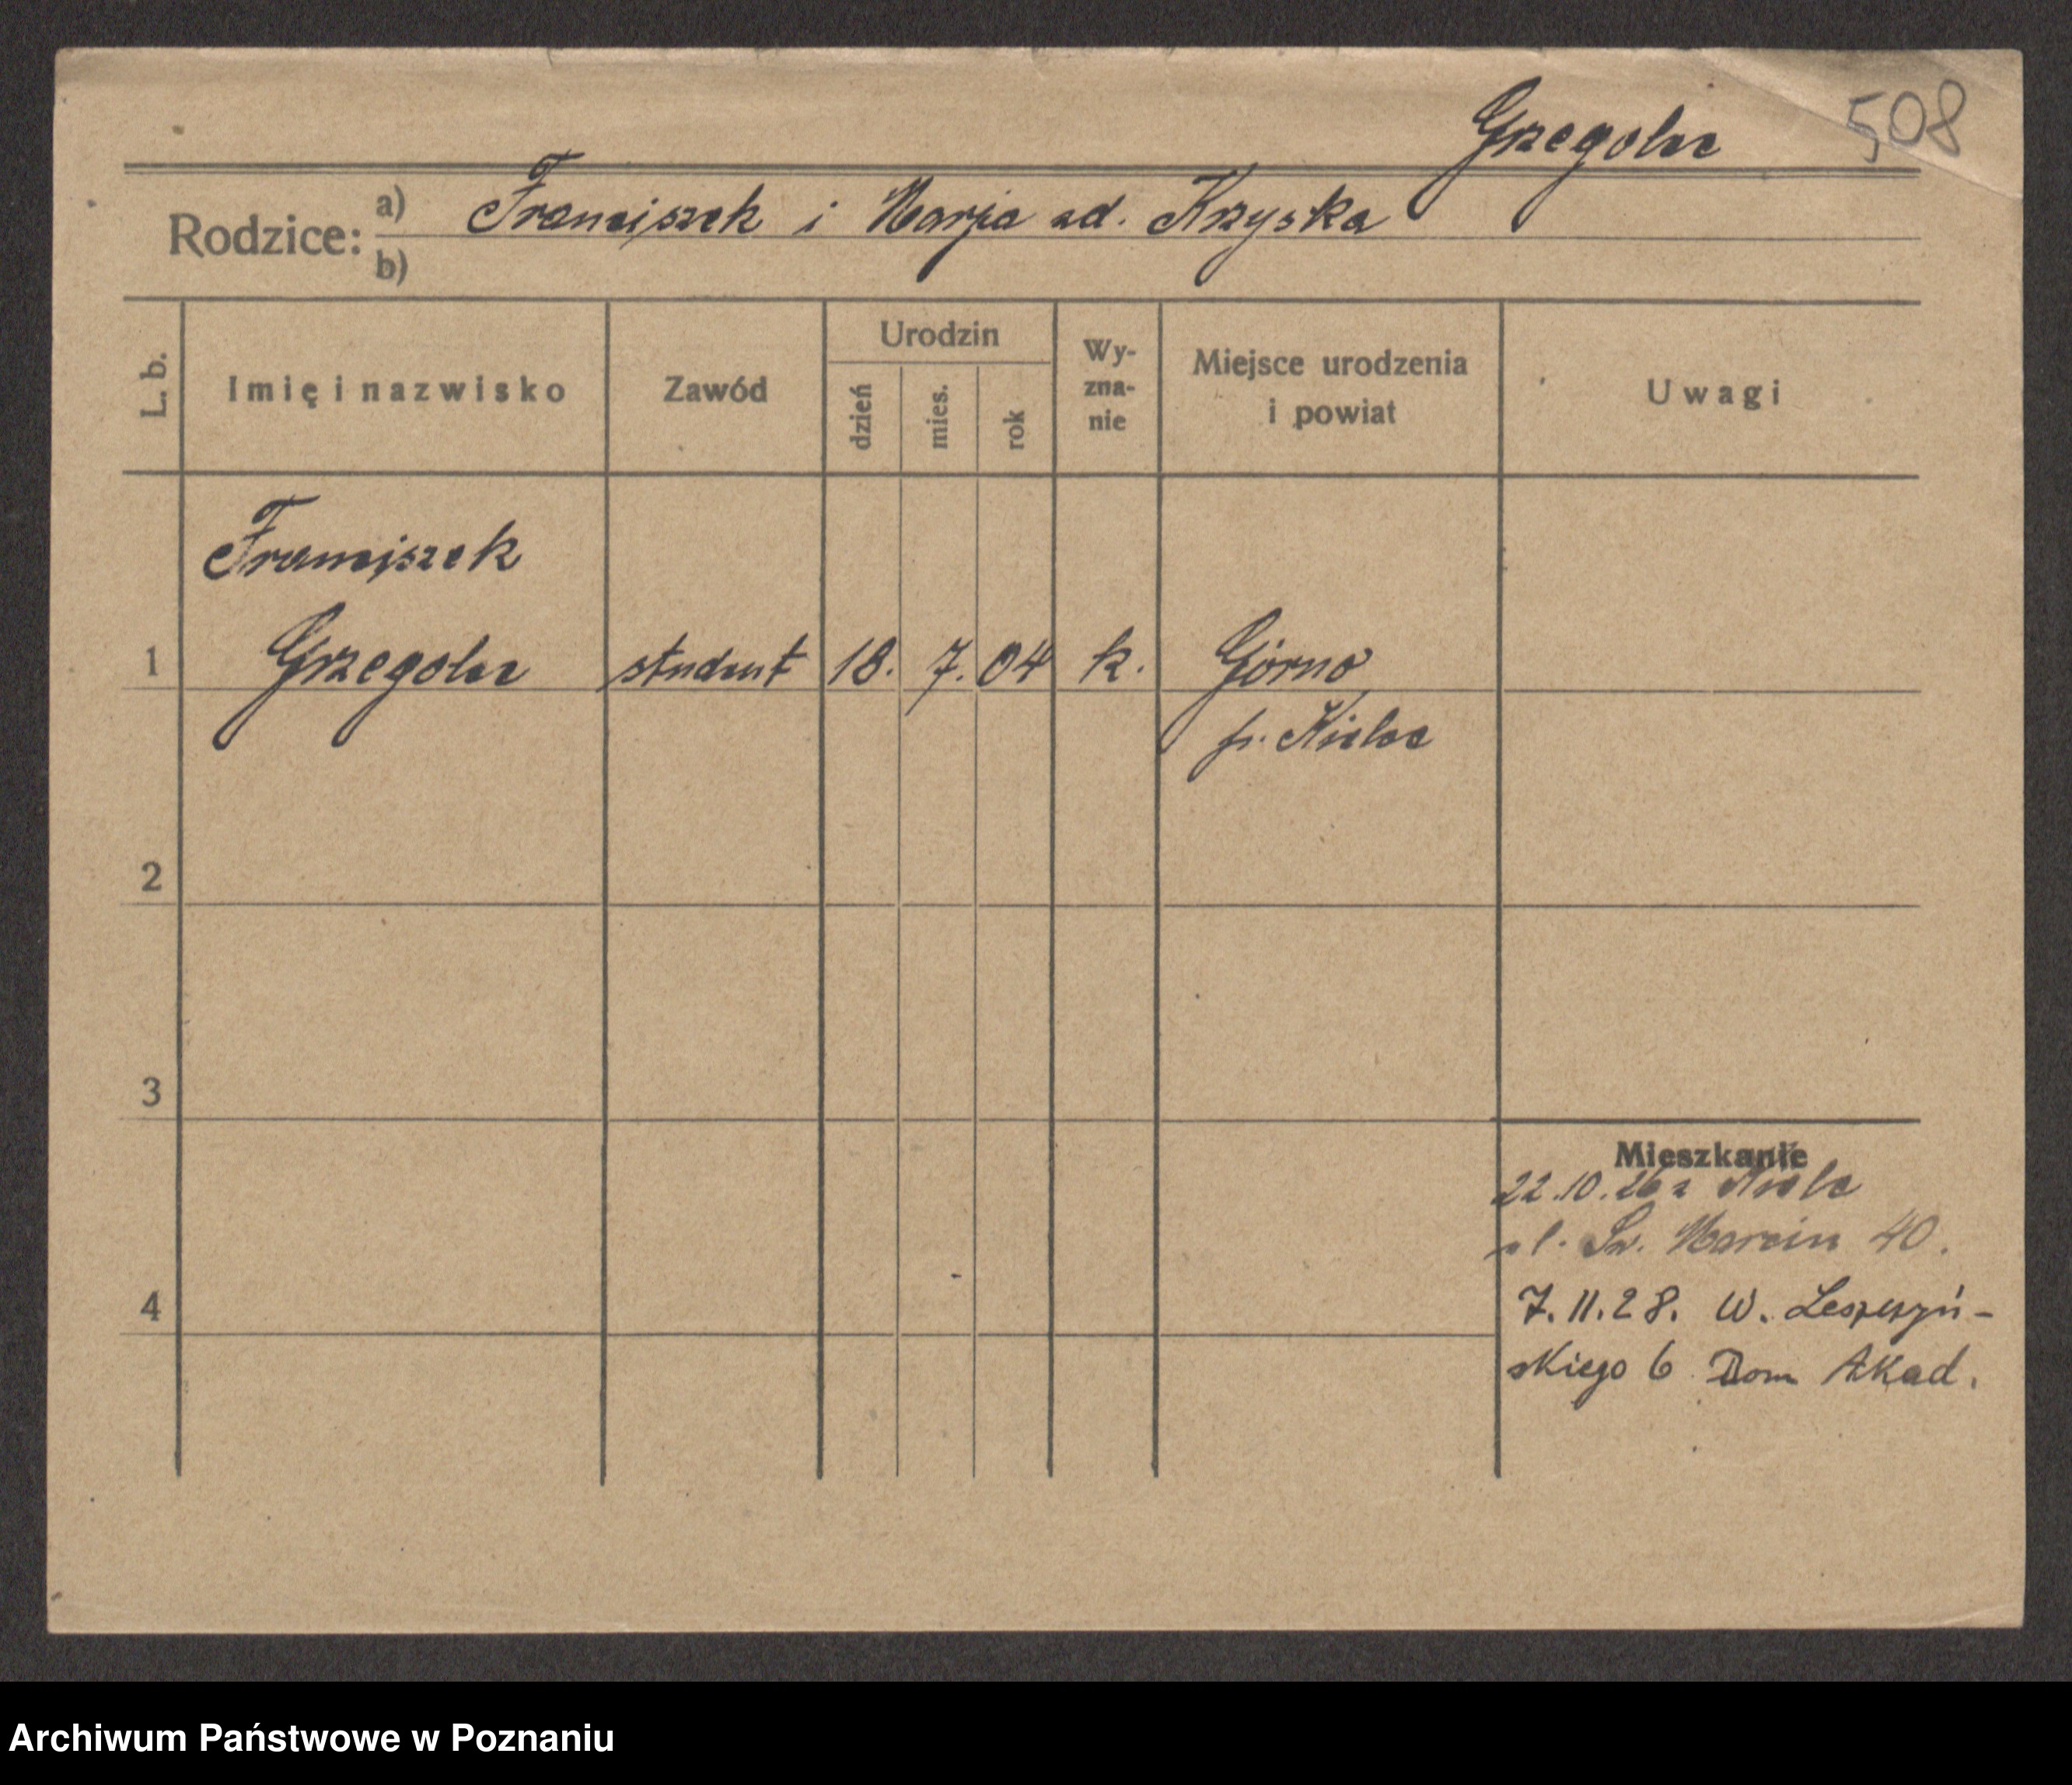 Grzegolec 508
Rodzice: a) Franciszek i Marja zd. Krzyska
b)
L. b. Imię i nazwisko Zawód Urodzin dzień mies. rok Wyznanie Miejsce urodzenia i powiat Uwagi
Franciszek
1 Grzegolec student 18. 7. 04 k. Górno
p. Kielce
2
3
Mieszkanie
22.10.26 z Kielc
ul. Św. Marcin 40.
4 7.11.28. W. Leszczyń-
skiego 6 Dom Akad.
Archiwum Państwowe w Poznaniu